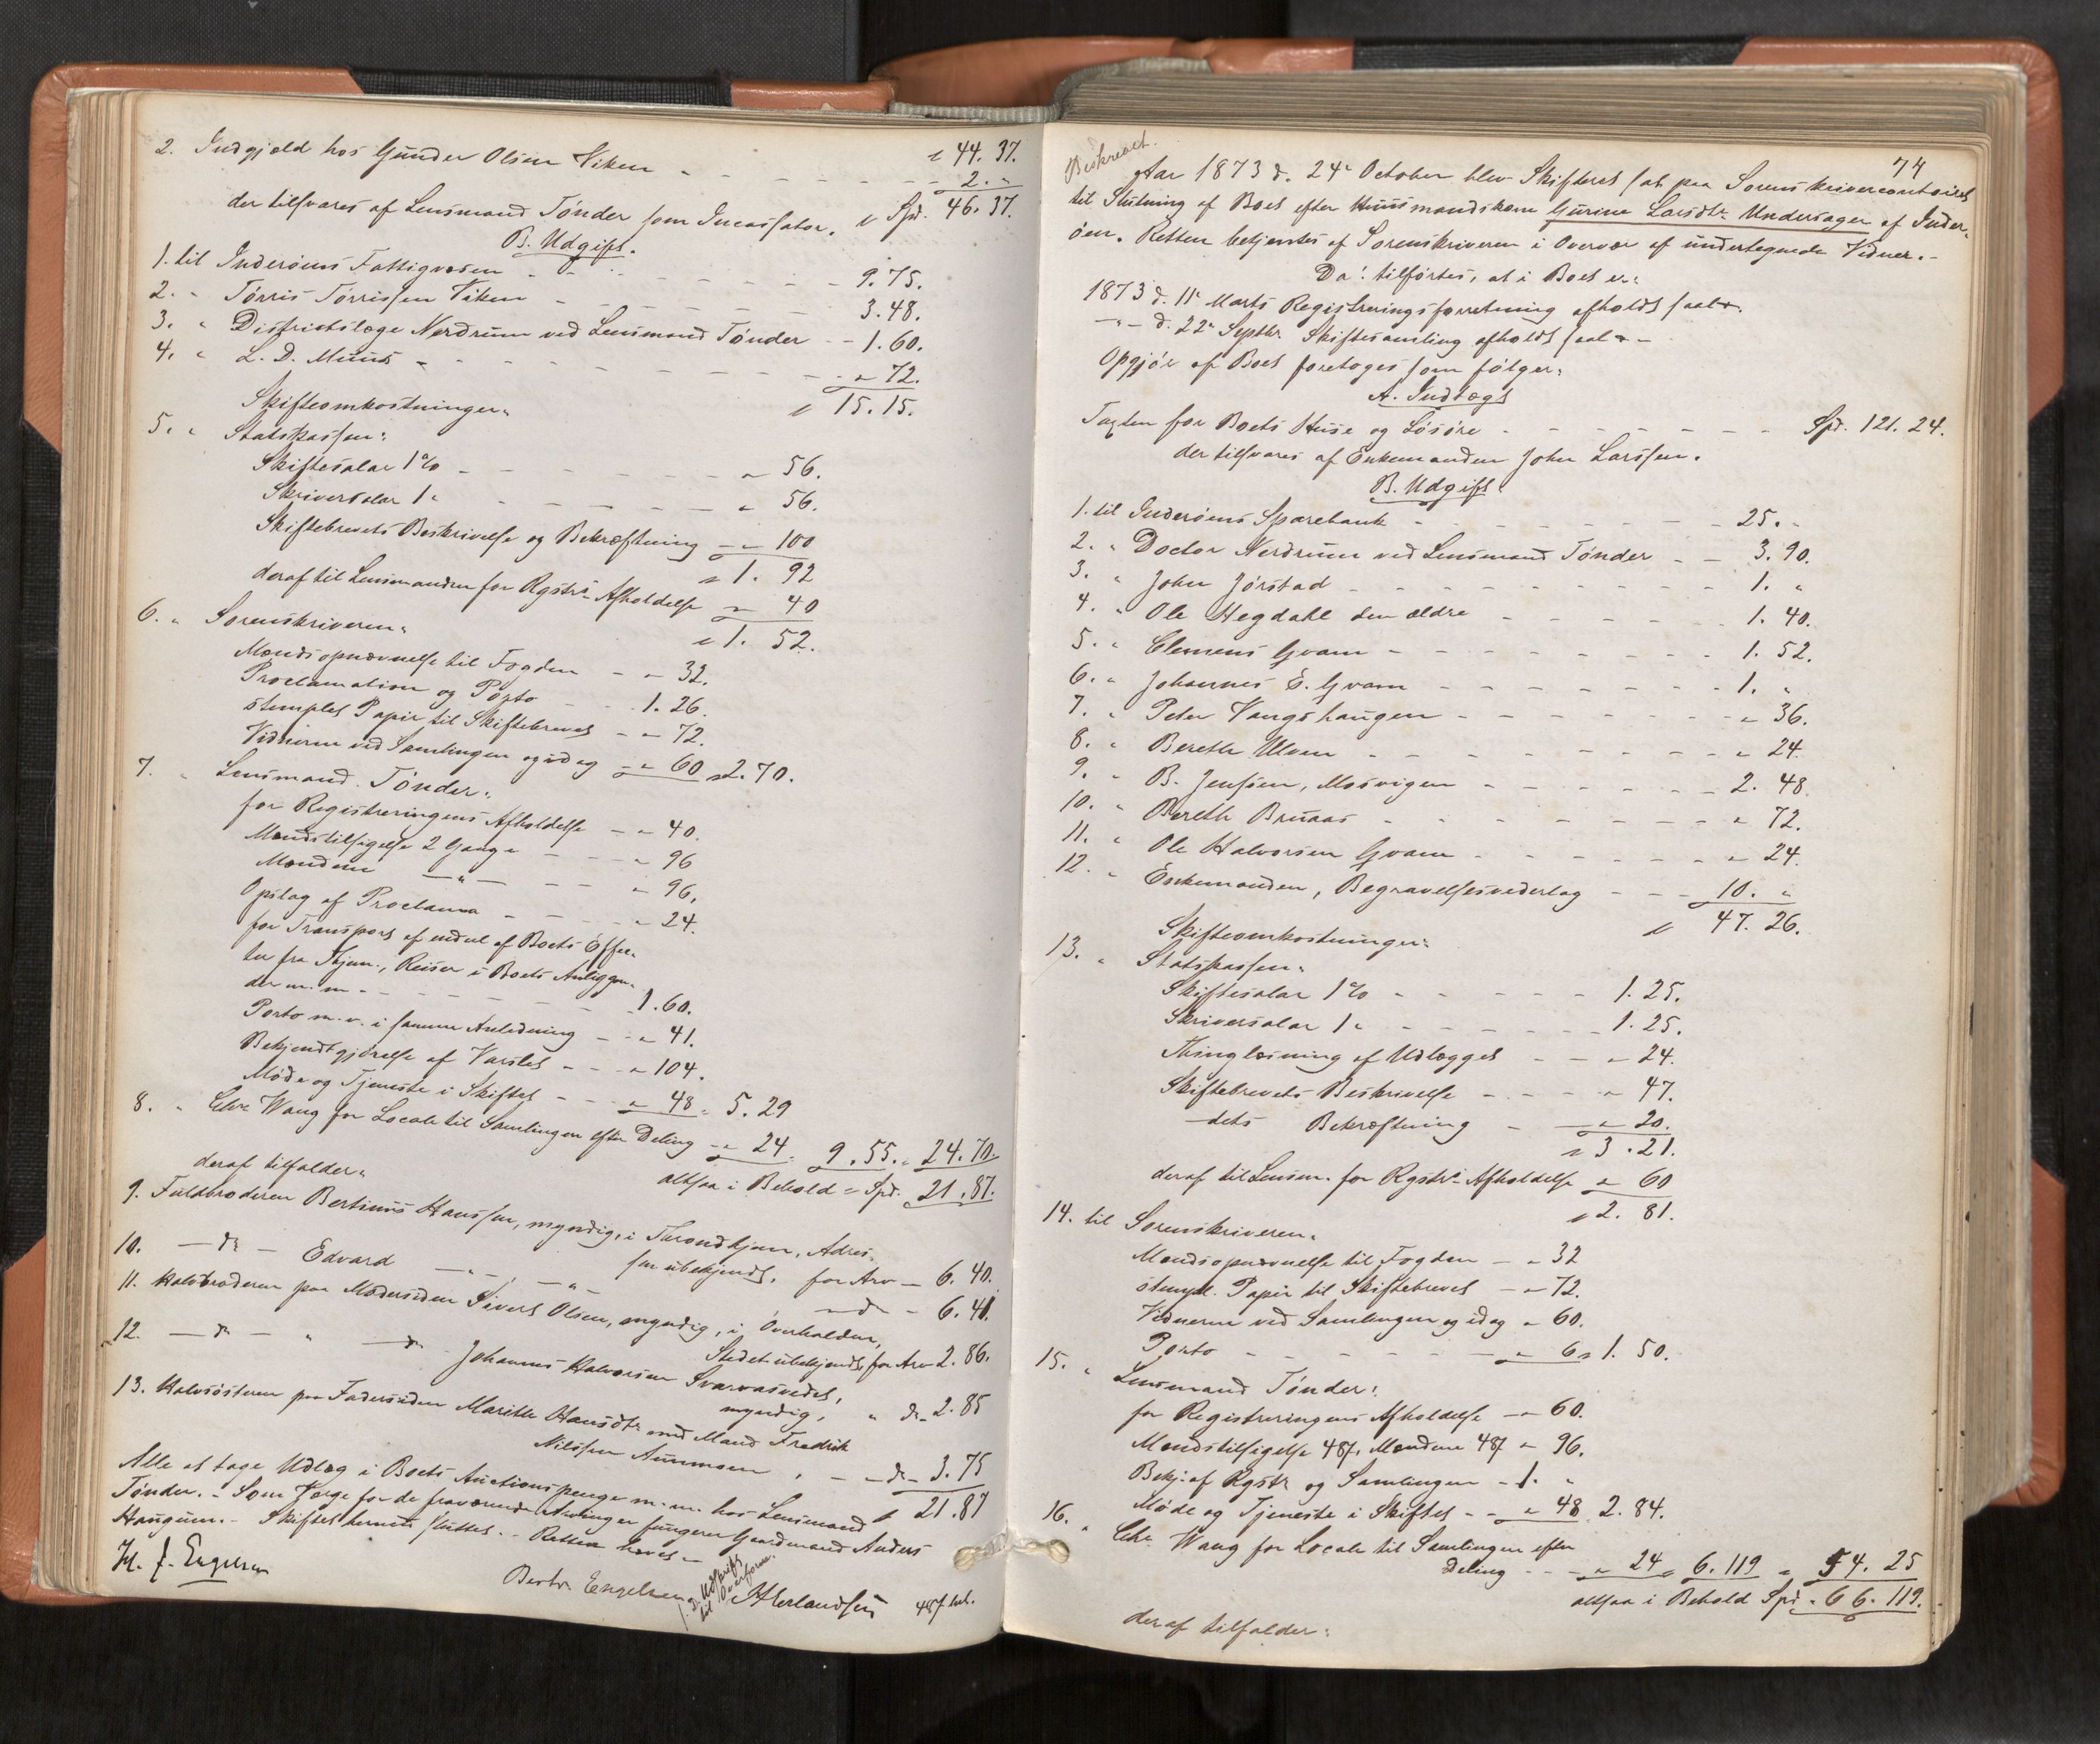 2. Indgjæld hos Gunder Olsen Viken - - - - - - „ 44. 37.
2. „
der tilsvares af Lensmand Tönder som Incassator. „ Spd. 46. 37.
B. Udgift.
1. til Inderöens Fattigvæsen - - - - - - - 9. 75.
2. „ Törris Törrissen Viken - - - - - 3. 48.
3. „ Districtslæge Nordrum ved Lensmand Tönder - - 1. 60.
4. „ L. D. Muus - - - - - - - - „ 72.
„ 15. 15.
Skifteomkostninger:
5. „ Statskassen:
Skiftesalær 1% - - - - - „ 56.
Skriversalær 1 „ - - - - - „ 56.
Skiftebrevets Beskrivelse og Bekræftning - „ 100
„ 1. 92
deraf til Lensmanden for Rgstrs Afholdelse „ 40
„ 1. 52.
6. „ Sorenskriveren:
Mændsopnævnelse til Fogden - „ 32.
Proclamation og Porto - - 1. 26.
stemplet Papir til Skiftebrevet - „ 72.
Vidnerne ved Samlingen og idag - „ 60 „ 2. 70.
7. „ Lensmand Tönder:
for Registreringens Afholdelse - „ 40.
Mændstilsigelse 2 Gange - - - „ 96
Mændene —„— - - „ 96.
Opslag af Proclama - - - - „ 24.
for Transport af endel af Boets Effec-
ter fra Thjem, Reiser i Boets Anliggen-
der m. m - - - - - - - 1. 60.
Porto m. v. i samme Anledning - - „ 41.
Bekjendtgjörelse af Varslet - - - „ 104.
Möde og Tjeneste i Skiftet - - „ 48 „ 5. 29
8. „ Chr. Wang for Locale til Samlingen efter Deling - „ 24 „ 9. 55. „ 24. 70.
altsaa i Behold = Spd. 21. 87.
deraf tilfalder:
9. Fuldbroderen Bertinus Hanssen, myndig, i Throndhjem, Adres-
sen ubekjendt, for Arv - 6. 40.
10. — do — Edvard —„—, —„— — do - 6. 41.
11. Halvbroderen paa Mödersiden Sivert Olsen, myndig, i Overhalden,
Stedet ubekjendt, for Arv 2. 86.
12. — do — „ — do Johannes Halvorsen Svarvasvedet,
myndig, „ do - 2. 85
13. Halvsösteren paa Fadersiden Marith Hansdtr. med Mand Fredrik
Nilssen Aunmoen, - - do - 3. 75
„ 21. 87
Alle at tage Udlæg i Boets Auctionspenge m. m. hos Lensmand
Tönder. - Som Værge for de fraværende Arvinger fungerer Gaardmand Anders
Haugum. - Skiftet hermed sluttet. - Retten hævet -
H. J. Engelsen
Berto Engelsen
f. D. Udskrift til Overform.
Herlandsen 48 ß bet.
74
Beskrevet.
Aar 1873 d. 24de October blev Skifteret sat paa Sorenskrivercontoiret
til Slutning af Boet efter Huusmandskone Gurine Larsdtr. Undersager af Inder-
öen. Retten betjentes af Sorenskriveren i Overvær af undertegnede Vidner. -
Da: tilförtes, at i Boet er:
1873 d. 11te Marts Registreringsforretning afholdt saal.
—„— d. 22de Septbr. Skiftesamling afholdt saal. -
Opgjör af Boet foretoges som fölger:
A. Indtægt
Taxten for Boets Huse og Lösöre - - - - - - - Spd. 121. 24.
der tilsvares af Enkemanden John Larssen.
B. Udgift.
1. til Inderöens Sparebank - - - - - - - - 25. „
2. „ Doctor Nordrum ved Lensmand Tönder - - 3. 90.
3. „ John Jörstad - - - - - - - - - 1. „
4. „ Ole Hegdahl den ældre - - - - - 1. 40.
5. „ Clemens Gvam - - - - - - - - 1. 52.
6. „ Johannes E. Gvam - - - - - - - 1. „
7. „ Peter Vangshaugen - - - - - - - „ 36.
8. „ Bereth Ulven - - - - - - - - „ 24.
9. „ B. Jenssen, Mosvigen - - - - - - 2. 48.
10. „ Bereth Bruaas - - - - - - - „ 72.
11. „ Ole Halvorsen Gvam - - - - - - „ 24.
12. „ Enkemanden, Begravelsesvederlag - - - 10. „
„ 47. 26.
Skifteomkostninger:
13. „ Statskassen:
Skiftesalær 1% - - - - - 1. 25.
Skriversalær 1 „ - - - - - - 1. 25.
Thinglæsning af Udlægget - - „ 24.
Skiftebrevets Beskrivelse - - - - „ 47.
—dets Bekræftning - - „ 20.
„ 3. 21.
deraf til Lensm. for Rgstrs Afholdelse „ 60
„ 2. 81.
14. til Sorenskriveren:
Mændsopnævnelse til Fogden - „ 32
stempl. Papir til Skiftebrevet - „ 72.
Vidnerne ved Samlingen og idag „ 60.
Porto - - - - - - - „ 6 „ 1. 50.
15. „ Lensmand Tönder:
for Registreringens Afholdelse - „ 60.
Mændstilsigelse 48 ß, Mændene 48 ß „ 96.
Bekj. af Rgstr. og Samlingen - 1. „
Möde og Tjeneste i Skiftet - - „ 48 2. 84.
16. „ Chr. Wang for Locale til Samlingen efter
Deling - - - „ 24 „ 6. 119 „ 54. 25
altsaa i Behold Spd. 66. 119.
deraf tilfalder: